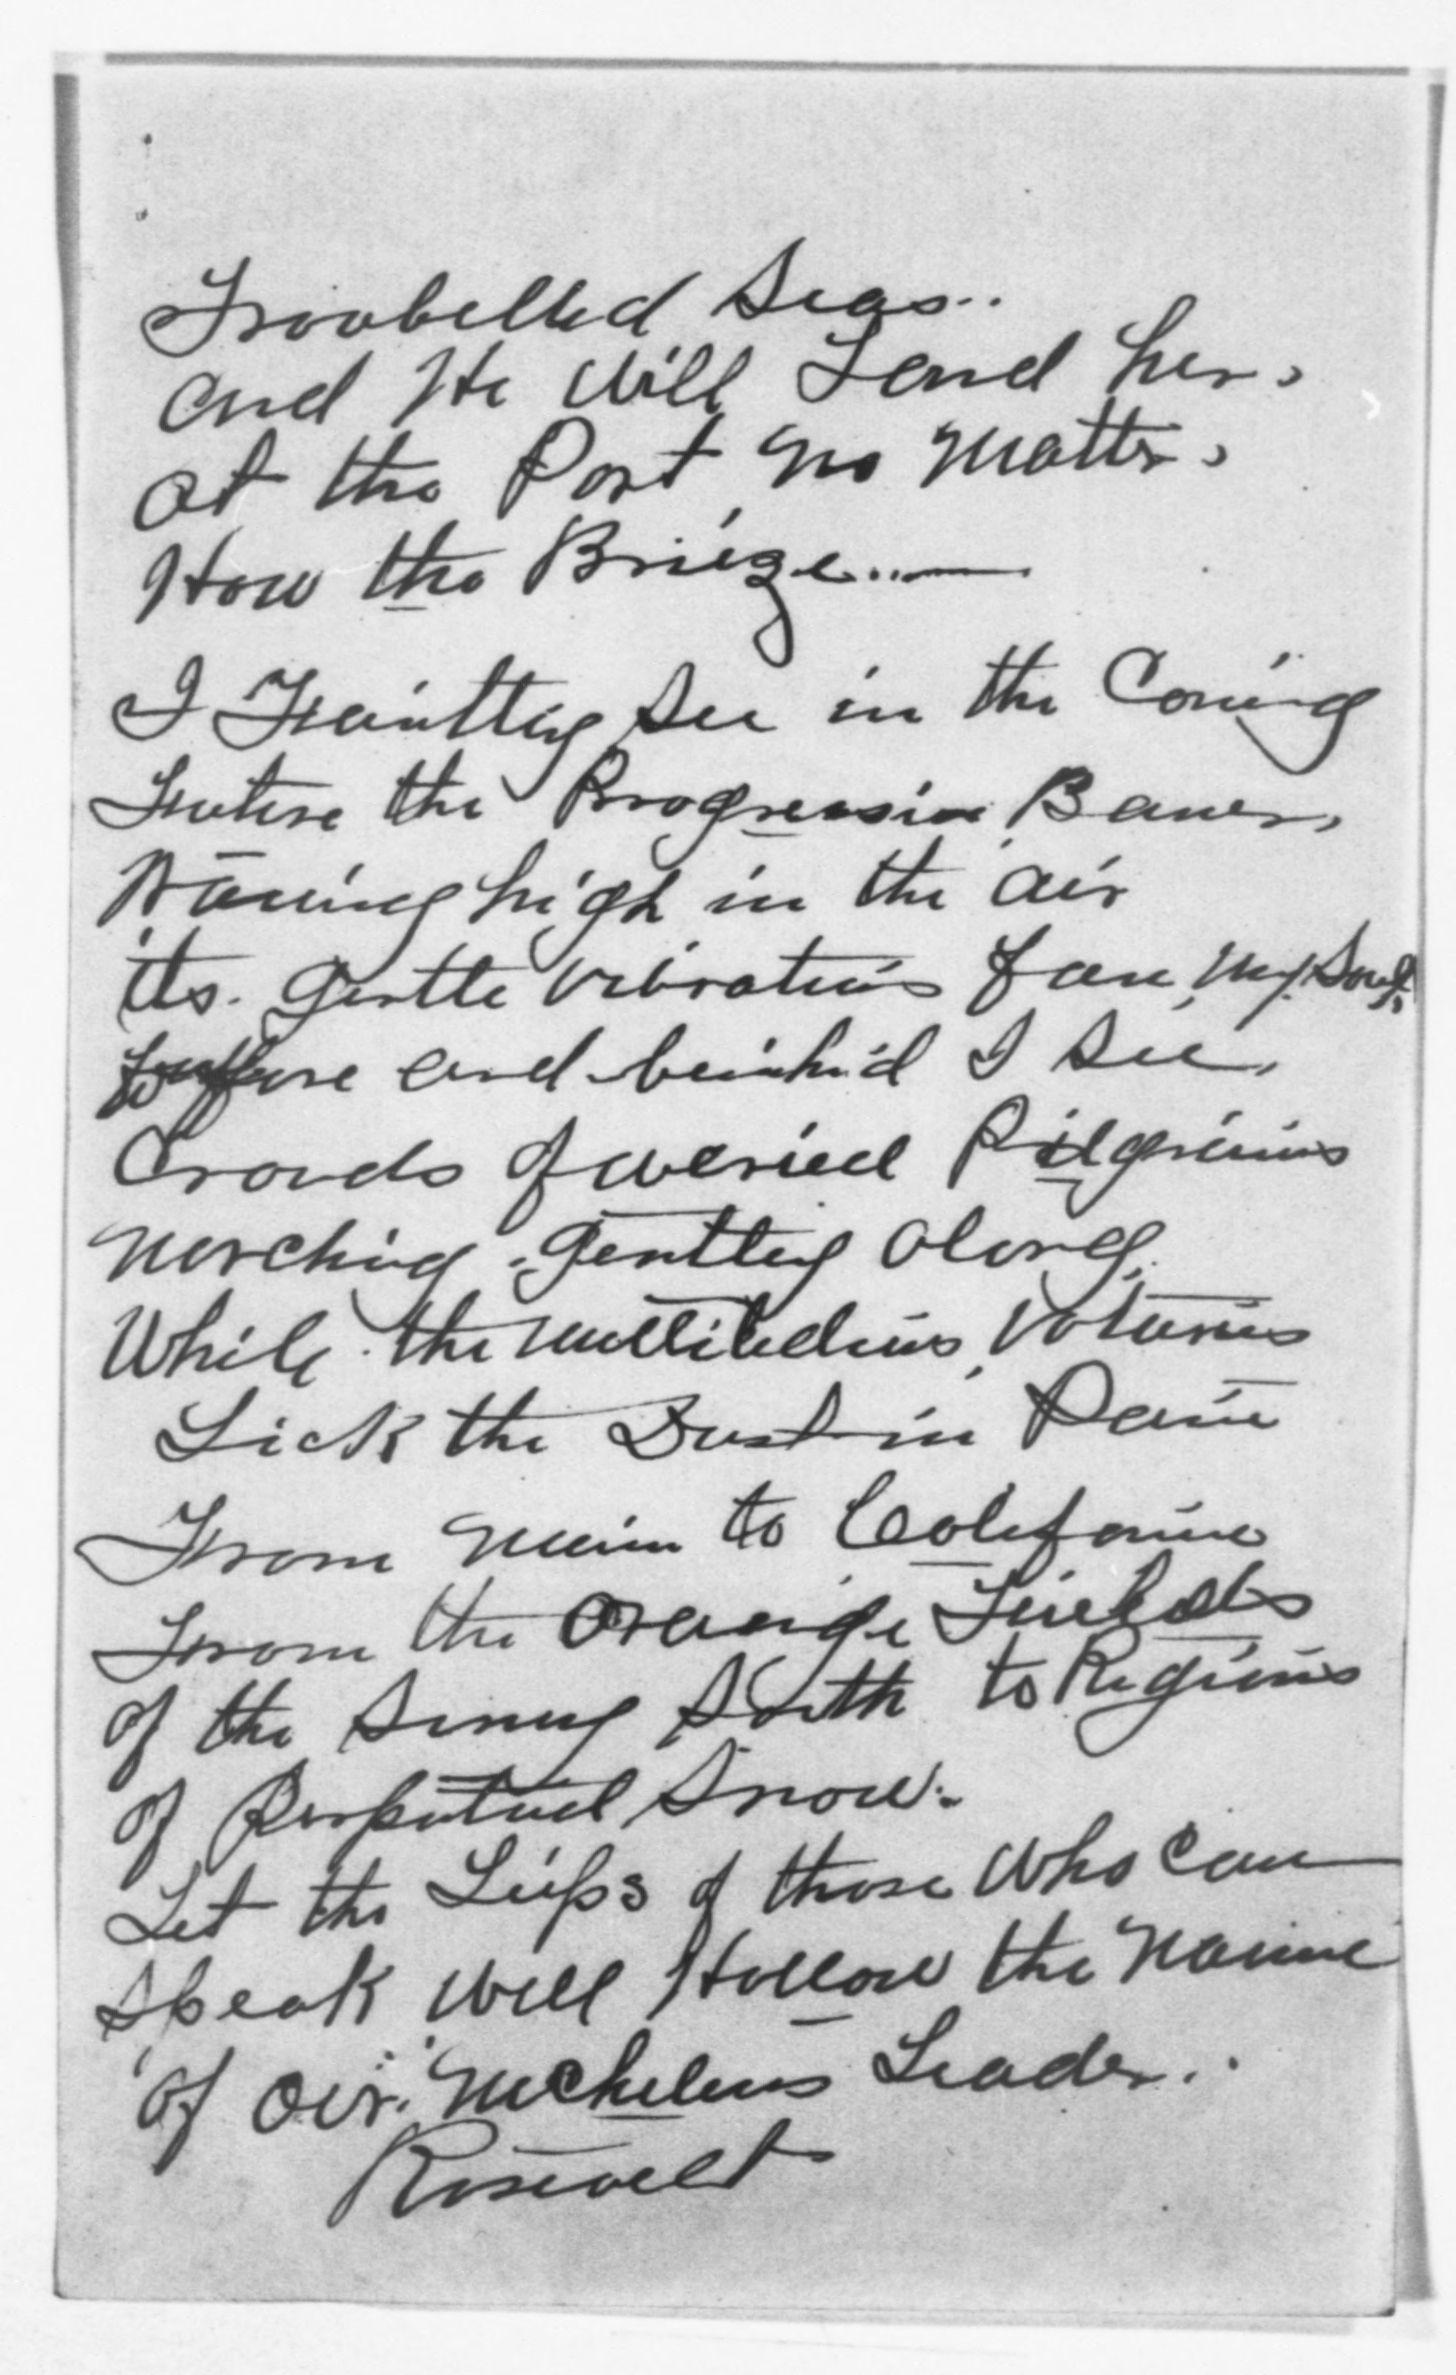 Troobelled Seas..
and He Will Land her,
at the Port no matter,
How the Brieze...—
I Faintley See in the Coming
Future the Progressive Baner,
Waving high in the air
its. Gentle Vibrations fan my Soul.
before and beinhid I See,
Crowds of weried Pilgrims
Marching. Gentley along.
While the Multitudins Votaries
Lick the Dust in Paine
From Main to California
From the Orange Fields
of the Sunny South to Regions
of Perpetual Snow.
Let the Lips of those Who Can
Speak Will Hollow the Name
of our. Leader.
Rosevelt